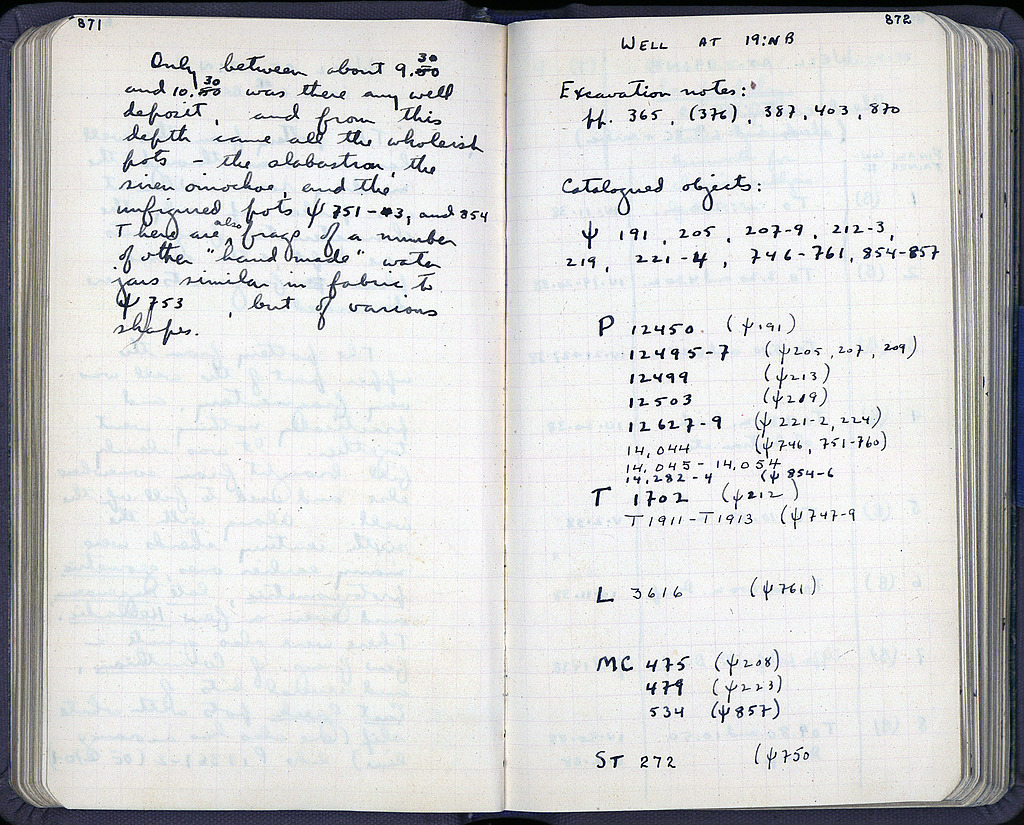 871
Only between about 9.30
and 10.30 was there any well
deposit, and from this
depth came all the wholeish
pots - the alabastron, the
siren oinochoe, and the
unfigured pots ψ 751-3, and 854
There are also frags of a number
of other "hand made" water
jars similar in fabric to
ψ 753 , but of various
shapes.
872
WELL AT 19:NB
Excavation notes:
pp. 365, (376), 387, 403, 870
Catalogued objects:
ψ 191, 205, 207-9, 212-3,
219, 221-4, 746-761, 854-857
P 12450. (ψ191)
12495-7 (ψ205, 207, 209)
12499 (ψ213)
12503 (ψ219)
12627-9 (ψ221-2, 224)
14,044 (ψ746, 751-760)
14,045-14,054
14,282-4 (ψ854-6
T 1702 (ψ212)
T1911-T1913 (ψ747-9
L 3616 (ψ761)
MC 475 (ψ208)
479 (ψ223)
534 (ψ857)
ST 272 (ψ750